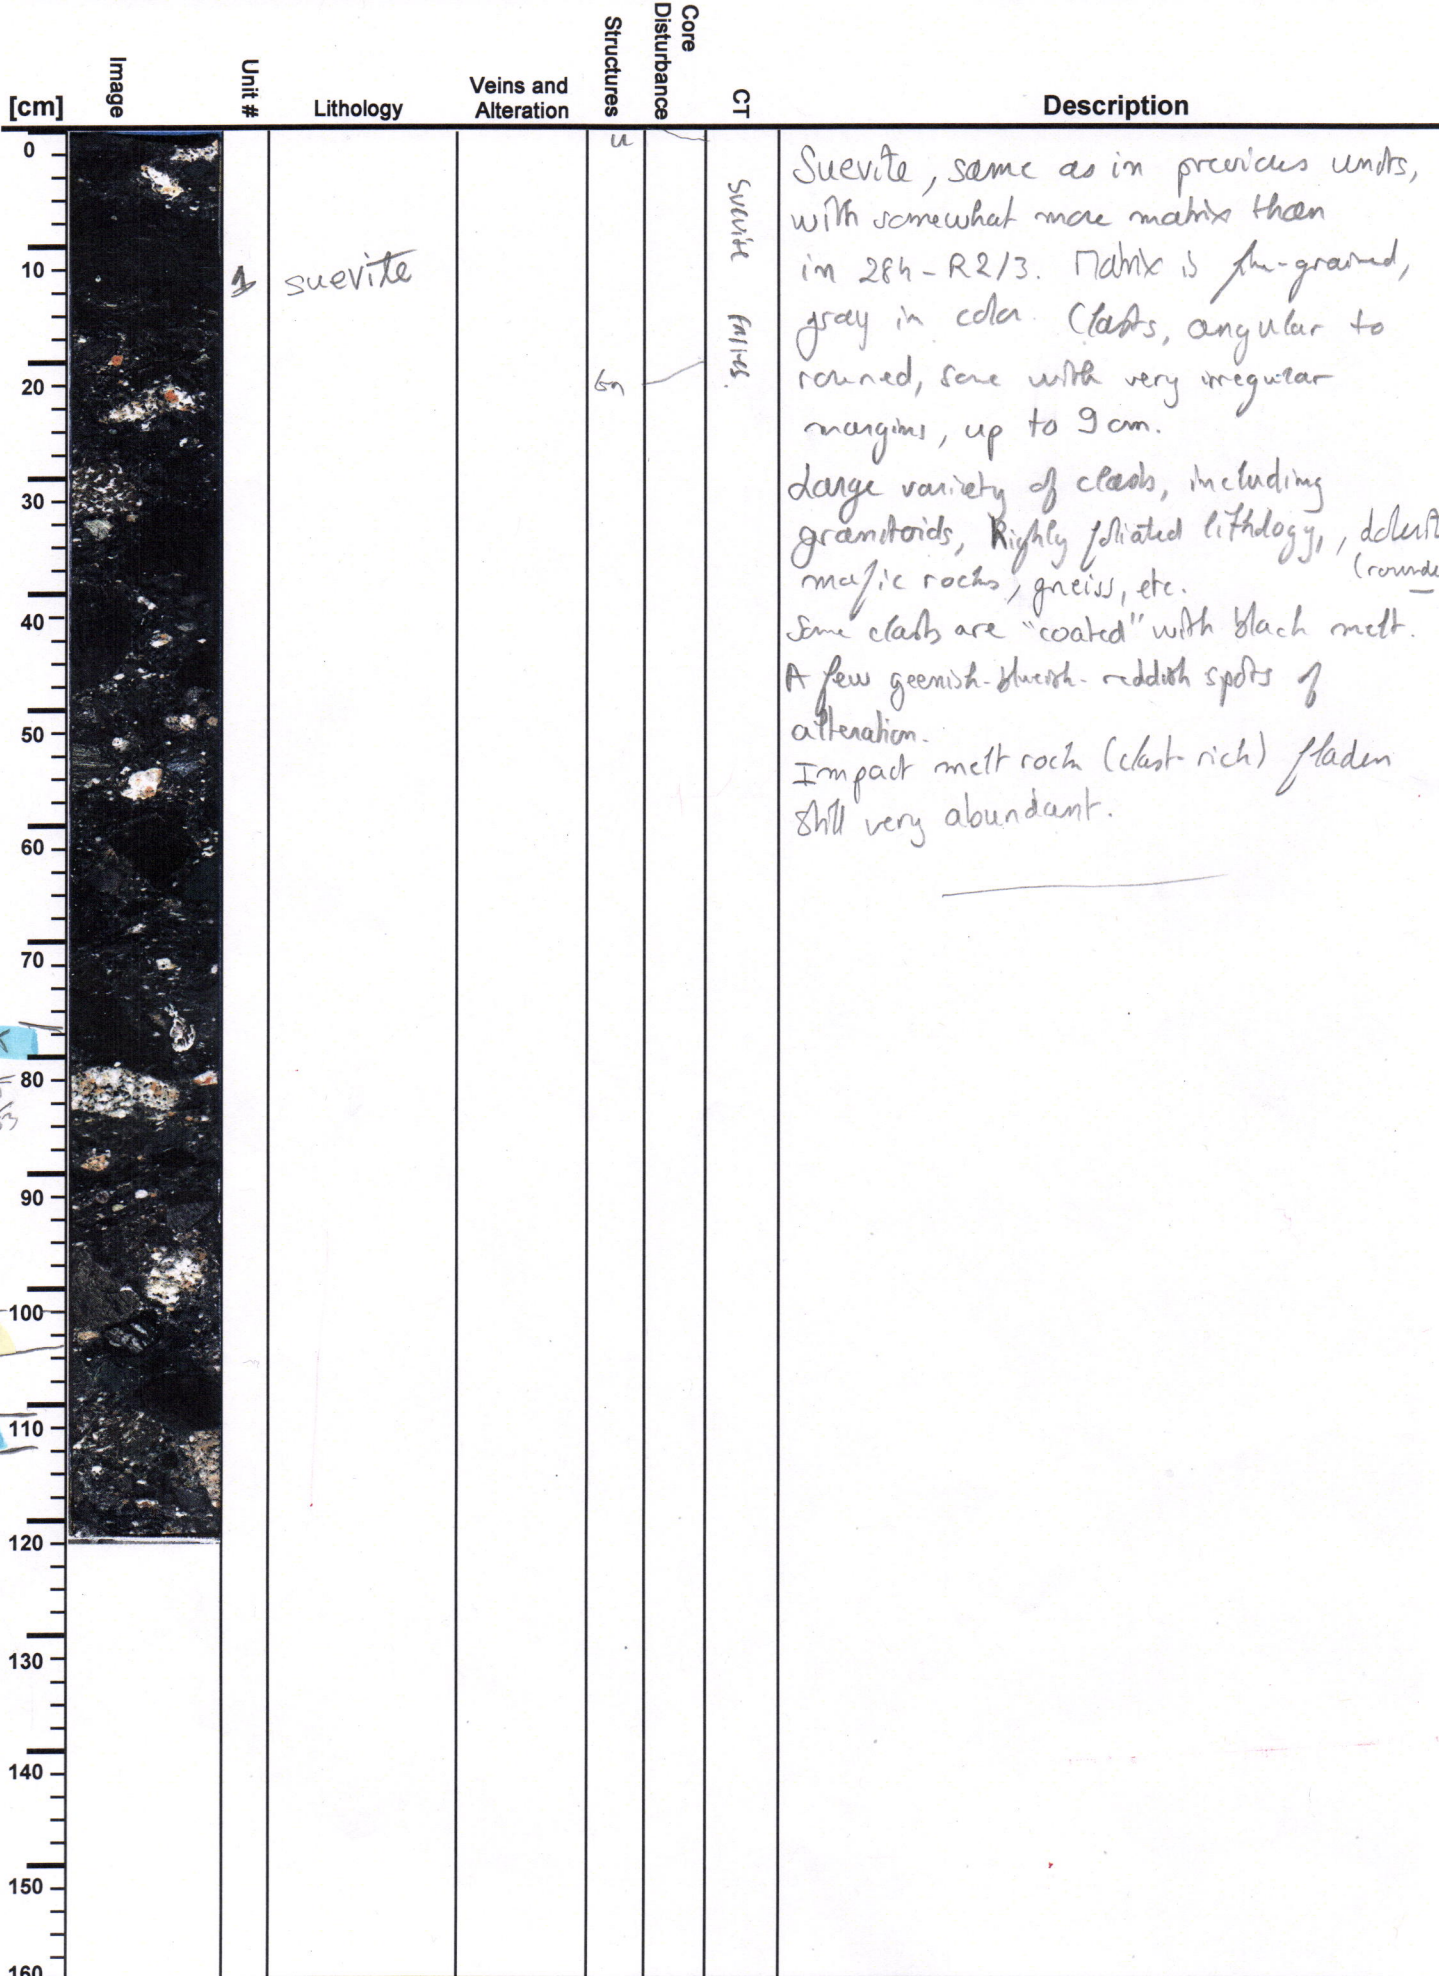 [cm]
Image
Unit #
Lithology
Veins and
Alteration
Structures
Core
Disturbance
CT
Description
0
10
20
30
40
50
60
70
80
90
100
110
120
130
140
150
160
1
suevite
u
6n
Suevite
Suevite, same as in previous units,
with somewhat more matrix than
in 28h-R2/3. Matrix is fine-grained,
gray in color. Clasts, angular to
rouned, some with very irregular
margins, up to 9 cm.
Large variety of clasts, including
granitoids, Highly foliated lithology,
(rounde
mafic rocks, gneiss, etc.
Some clasts are "coated" with black melt.
A few geenish-blueish-reddish spots of
alteration.
Impact melt rock (clast-rich) fladen
still very abundant.